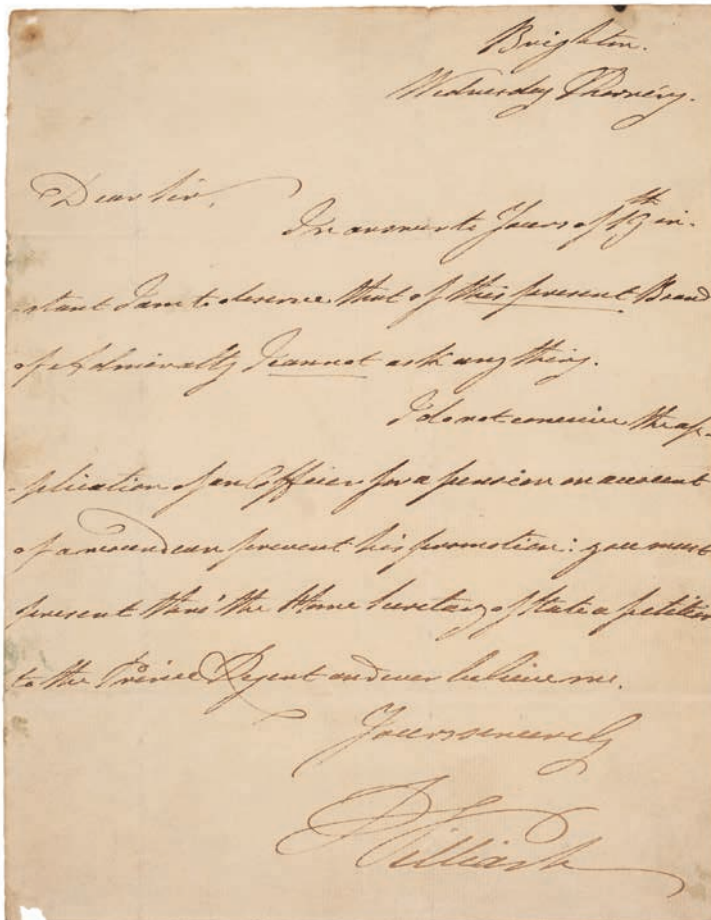 Brighton.
Wednesday Morning.
Dear Sir,
In answer to Yours of 19th in-
-stant I am to observe that of this present Board
of Admiralty I cannot ask any thing.
I do not conceive the ap-
-plication of an Officer for a pension on account
of a wound can prevent his promotion: you must
present thro' the Home Secretary of State a petition
to the Prince Regent and ever believe me.
Yours sincerely
William